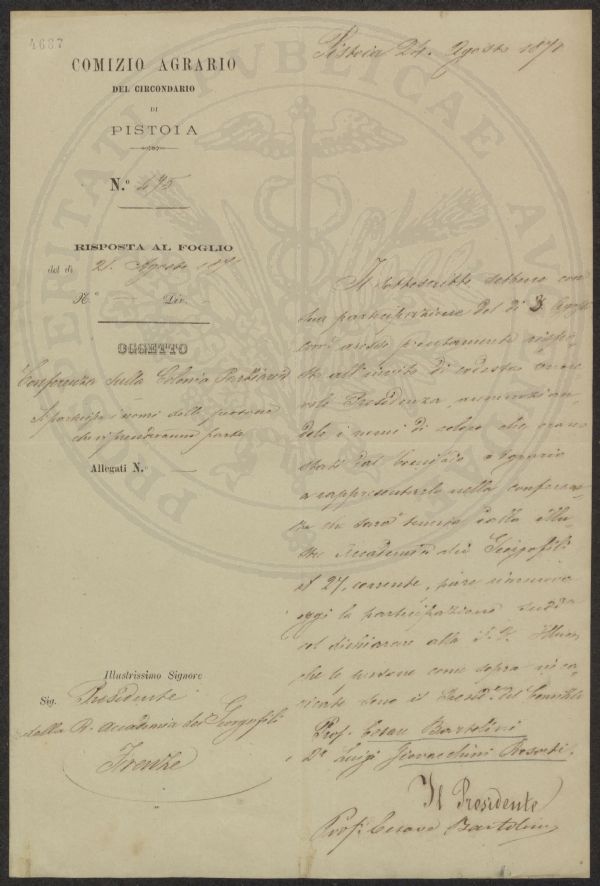 4687
COMIZIO AGRARIO
DEL CIRCONDARIO
DI
PISTOIA
N.° 475
RISPOSTA AL FOGLIO
del dì 21. Agosto 1871
N.° Div.
OGGETTO
Conferenza sulla Colonia Parziaria
Si partecipa i nomi delle persone
che vi prenderanno parte
Allegati N.°
Pistoia 24. Agosto 1871
Il sottoscritto sebbene con
sua partecipazione del dì 3 Agosto
avesse puntualmente rispo-
sto all'invito di codesta onore-
vole Presidenza, annunzian-
dole i nomi di coloro che erano
stati dal Comizio Agrario
a rappresentarlo nella conferen-
za che sarà tenuta dalla Illu-
stre Accademia dei Georgofili
il 27. corrente, pure rinnuova
oggi la partecipazione
col dichiarare alla S. V. Illma
che le persone come sopra in-
caricate sono il Presid.e del Comizio
Prof. Cesare Bartolini
e Dr Luigi Giovacchini Rosati.
Il Presidente
Prof. Cesare Bartolini
Illustrissimo Signore
Sig. Presidente
della R. Accademia dei Georgofili
Firenze
PROSPERITATI PUBLICAE AUGENDAE